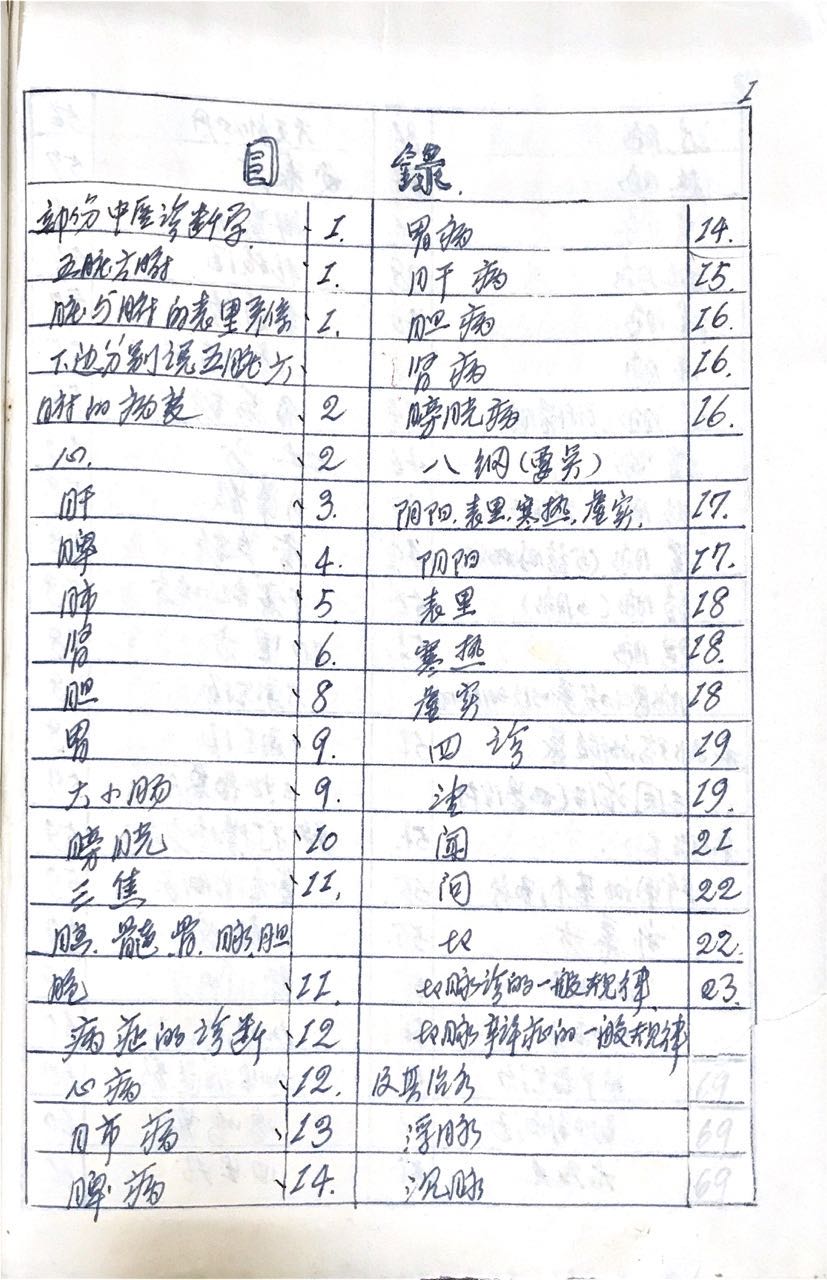 I
目 録
部份中医诊断学 I.
五脏六腑 I.
脏与腑的表里关係 I.
下边分别谈五脏六
腑的病 2
心. 2
肝 3.
脾 4.
肺 5
肾 6.
胆 8
胃 9.
大小肠 9.
膀胱 10
三焦 11.
脑、骨髓、骨、脉、胆
胞 11
病症的诊断 12
心病 12.
肺病 13
脾病 14.
胃病 14.
肝病 15.
胆病 16.
肾病 16.
膀胱病 16.
八纲(要
阴阳、表里、寒热、虚实. 17.
阴阳 17.
表里 18
寒热 18.
虚实 18
四诊 19
望 19.
闻 21
问 22
切 22.
切脉诊的一般规律 23.
切脉辨症的一般规律
及其治
浮脉
沉脉